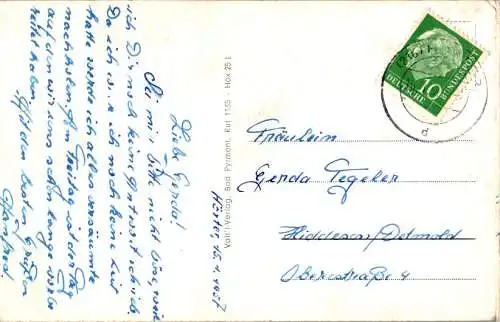 Höxter, 15.4.1957
Liebe Gerda!
Sei mir bitte nicht böse, weil
ich Dir noch keine Antwort schrieb.
Da ich noch keine Lust
hatte werde ich alles versäumte
nachholen. Am Freitag ist der Tag
auf den wir uns schon lange vorbe
reitet haben.
Mit den besten Grüßen
Manfred.
Vait'l-Verlag, Bad Pyrmont, Ruf 1155 - Hox 25 L
DEUTSCHE BUNDESPOST
10
Fräulein
Gerda Tegeler
Hiddesen/Detmold
Oberestraße 4